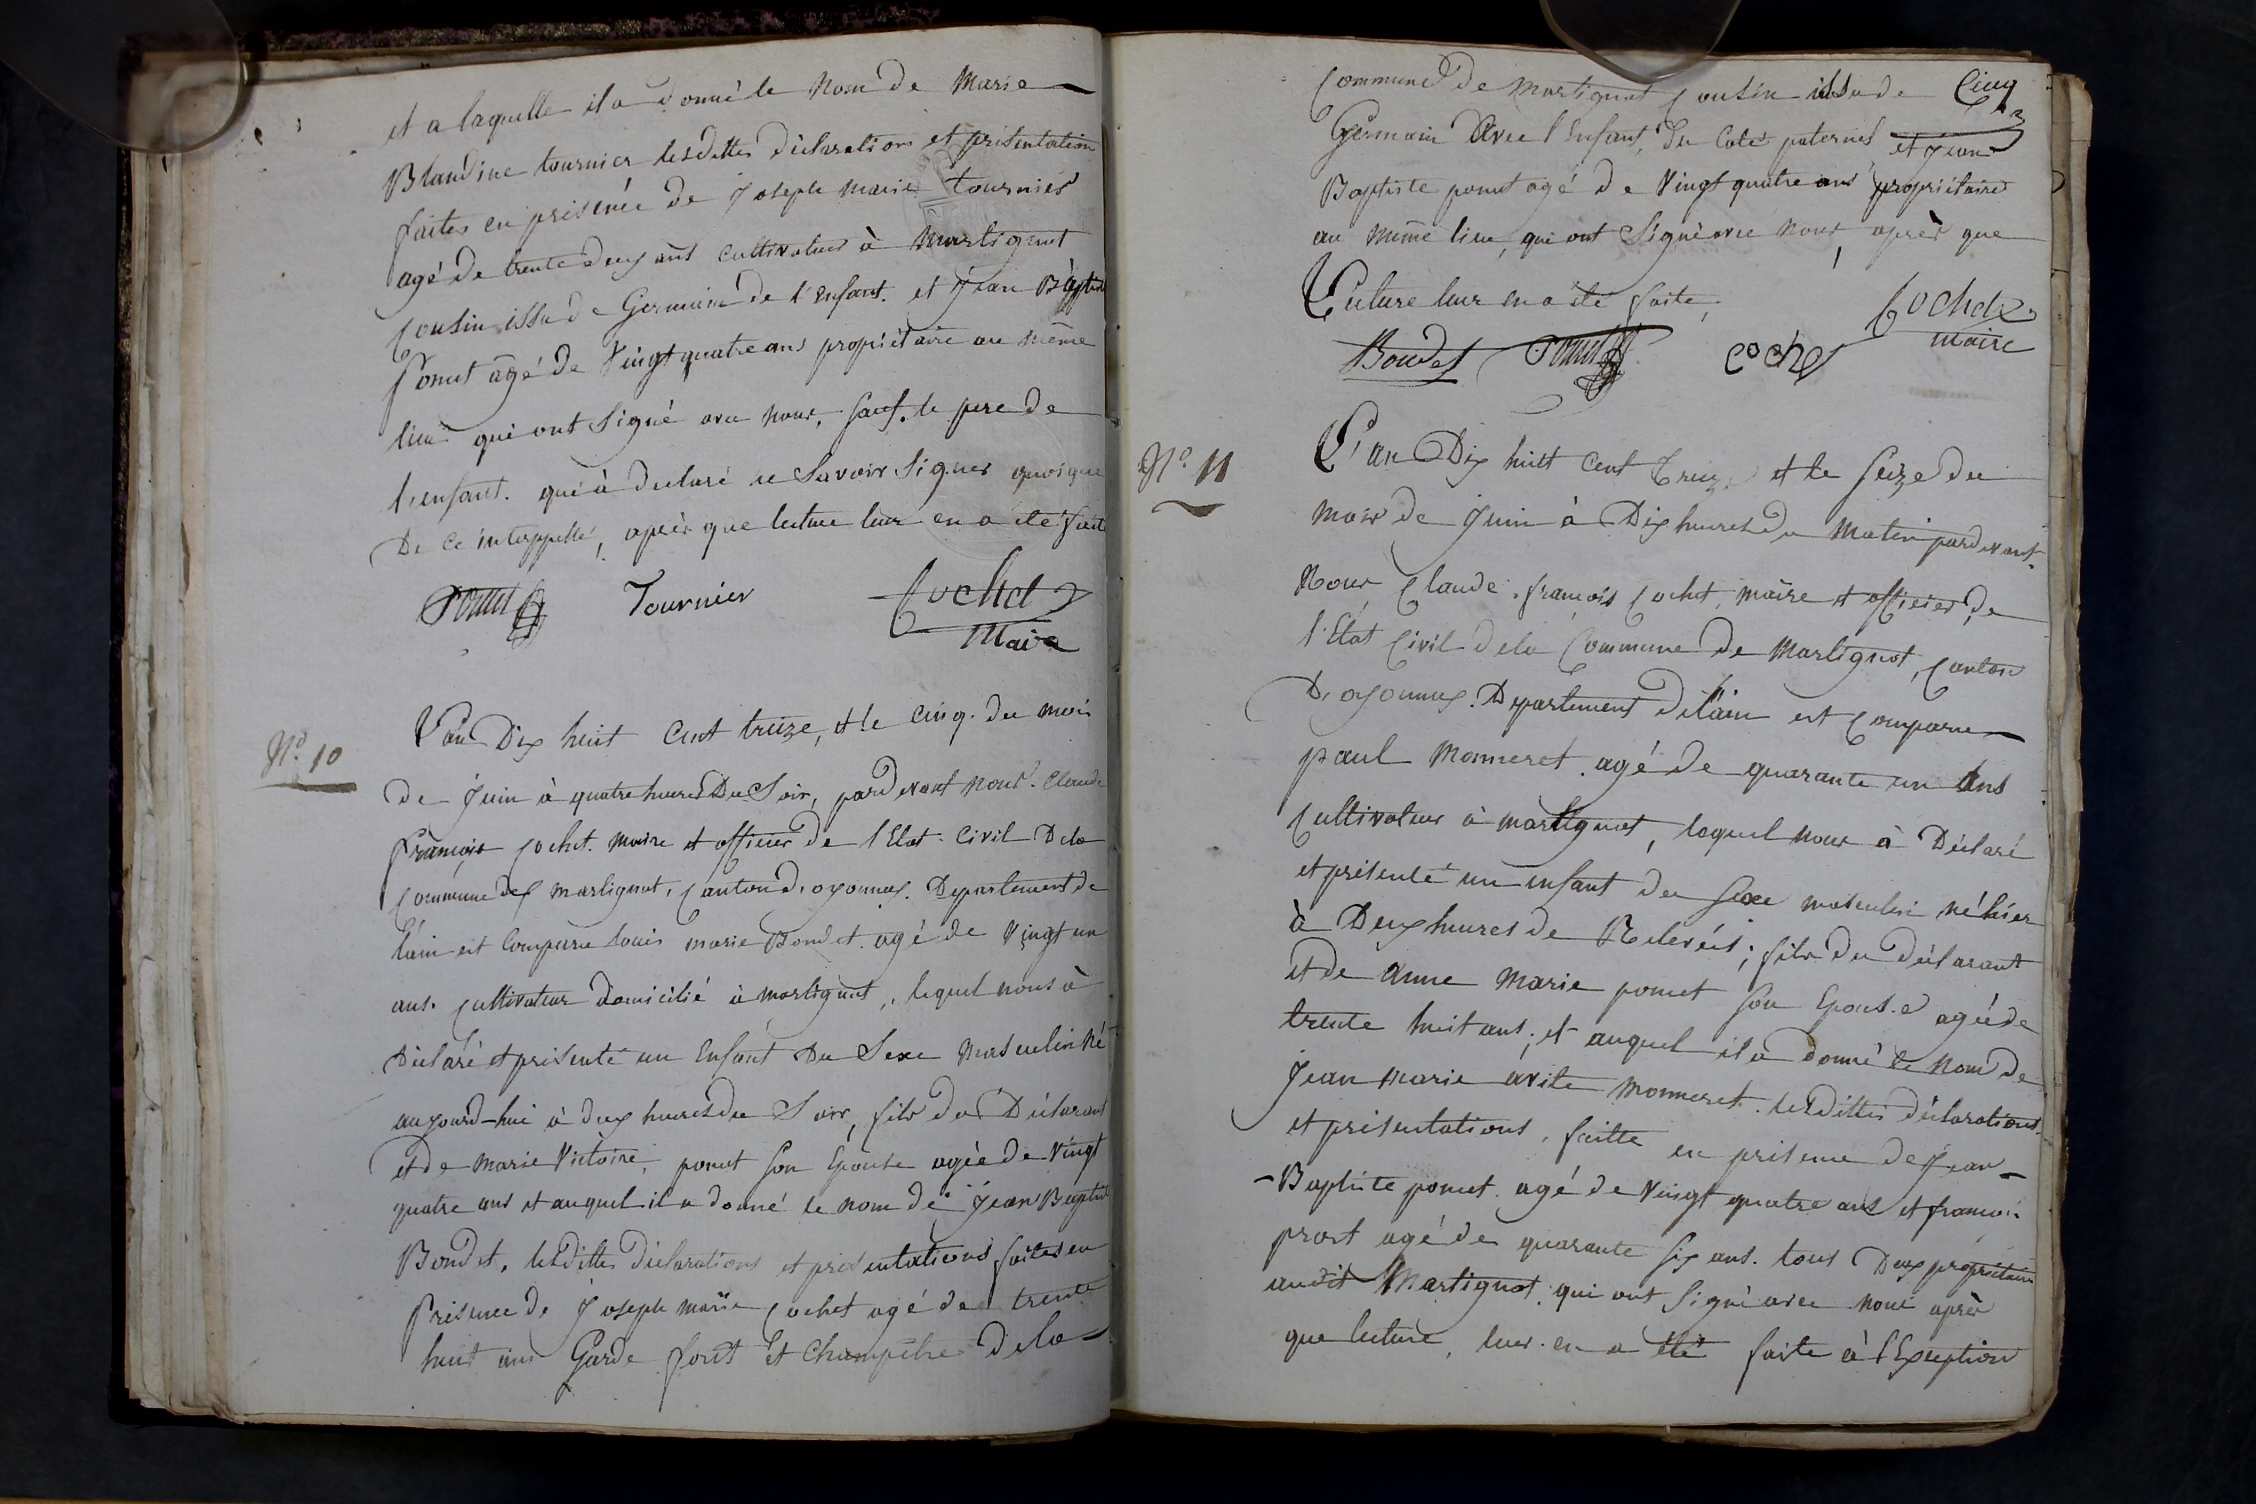 et a laquelle il a donné le Nom de Marie
Blandine tournier lesdittes déclarations et présentation
faites en présence de Joseph Marie tournier
agé de trente deux ans cultivateur à Martignat
Cousin issu de Germain de l'enfant. et Jean Baptiste
Ponut âgé de Vingt quatre ans propriétaire au même
lieu qui ont Signé avec nous, sauf. le pere de
l'enfant. qui à declaré ne Savoir Signer quoique
De ce interppellé, après que lecture leur en a été faite
Ponut Tournier Cochet
Maire
N° 10
L'an Dix huit Cent treize, et le cinq. du mois
de Juin à quatre heures Du Soir, pardevant nous. Claude
François Cochet. maire et officier de l'Etat Civil Dela
Commune de Martignat, Canton d'oyonnax. Departement de
l'ain est Comparu Louis marie Bondet. agé de Vingt un
ans. Cultivateur domicilié à martignat,. lequel nous à
Déclaré et présenté un Enfant Du Sexe Masculin Né
aujourd-hui à deux heures du Soir, fils du Déclarant
et de Marie Victoire, ponut son Epouse agée de Vingt
quatre ans et auquel il a donné le nom de Jean Baptiste
Bondet, lesdittes Déclarations et présentations faites en
Présence de Joseph marie Cochet agé de trente
huit ans Garde forêt et Champêtre Dela
Cinq
Commune de Martignat Cousin issu de
Germain Avec l'Enfant, du Coté paternel et Jean
Baptiste ponut agé de Vingt quatre ans propriétaire
au même lieu, qui ont Signé avec nous, après que
Lecture leur en a été faite,
Bondet Ponut Cochet Cochet
maire
N° 11
L'an Dix huit Cent Treize et le Seize du
mois de Juin à Dix heures du Matin pardevant
Nous Claude. françois Cochet, maire et officier de
l'Etat Civil dela Commune de Martignat, Canton
D'oyonnax. Département de l'ain est Comparu
paul Monneret. agé de quarante un Ans
Cultivateur à martignat, lequel nous à Déclaré
et présenté un enfant du Sexe masculin né hier
à Deux heures de Relevées; fils du déclarant
et de Anne Marie ponut son Epouse agée de
trente huit ans; et auquel il a donné le Nom de
Jean Marie avite Monneret. lesdittes déclarations
et présentations, faitte en présence de Jean
- Baptiste ponut. agé de Vingt quatre ans et françois
prost agé de quarante Six ans. tous Deux propriétaire
audit Martignat. qui ont Signé avec nous après
que lecture, leur en a été faite à l'Exception